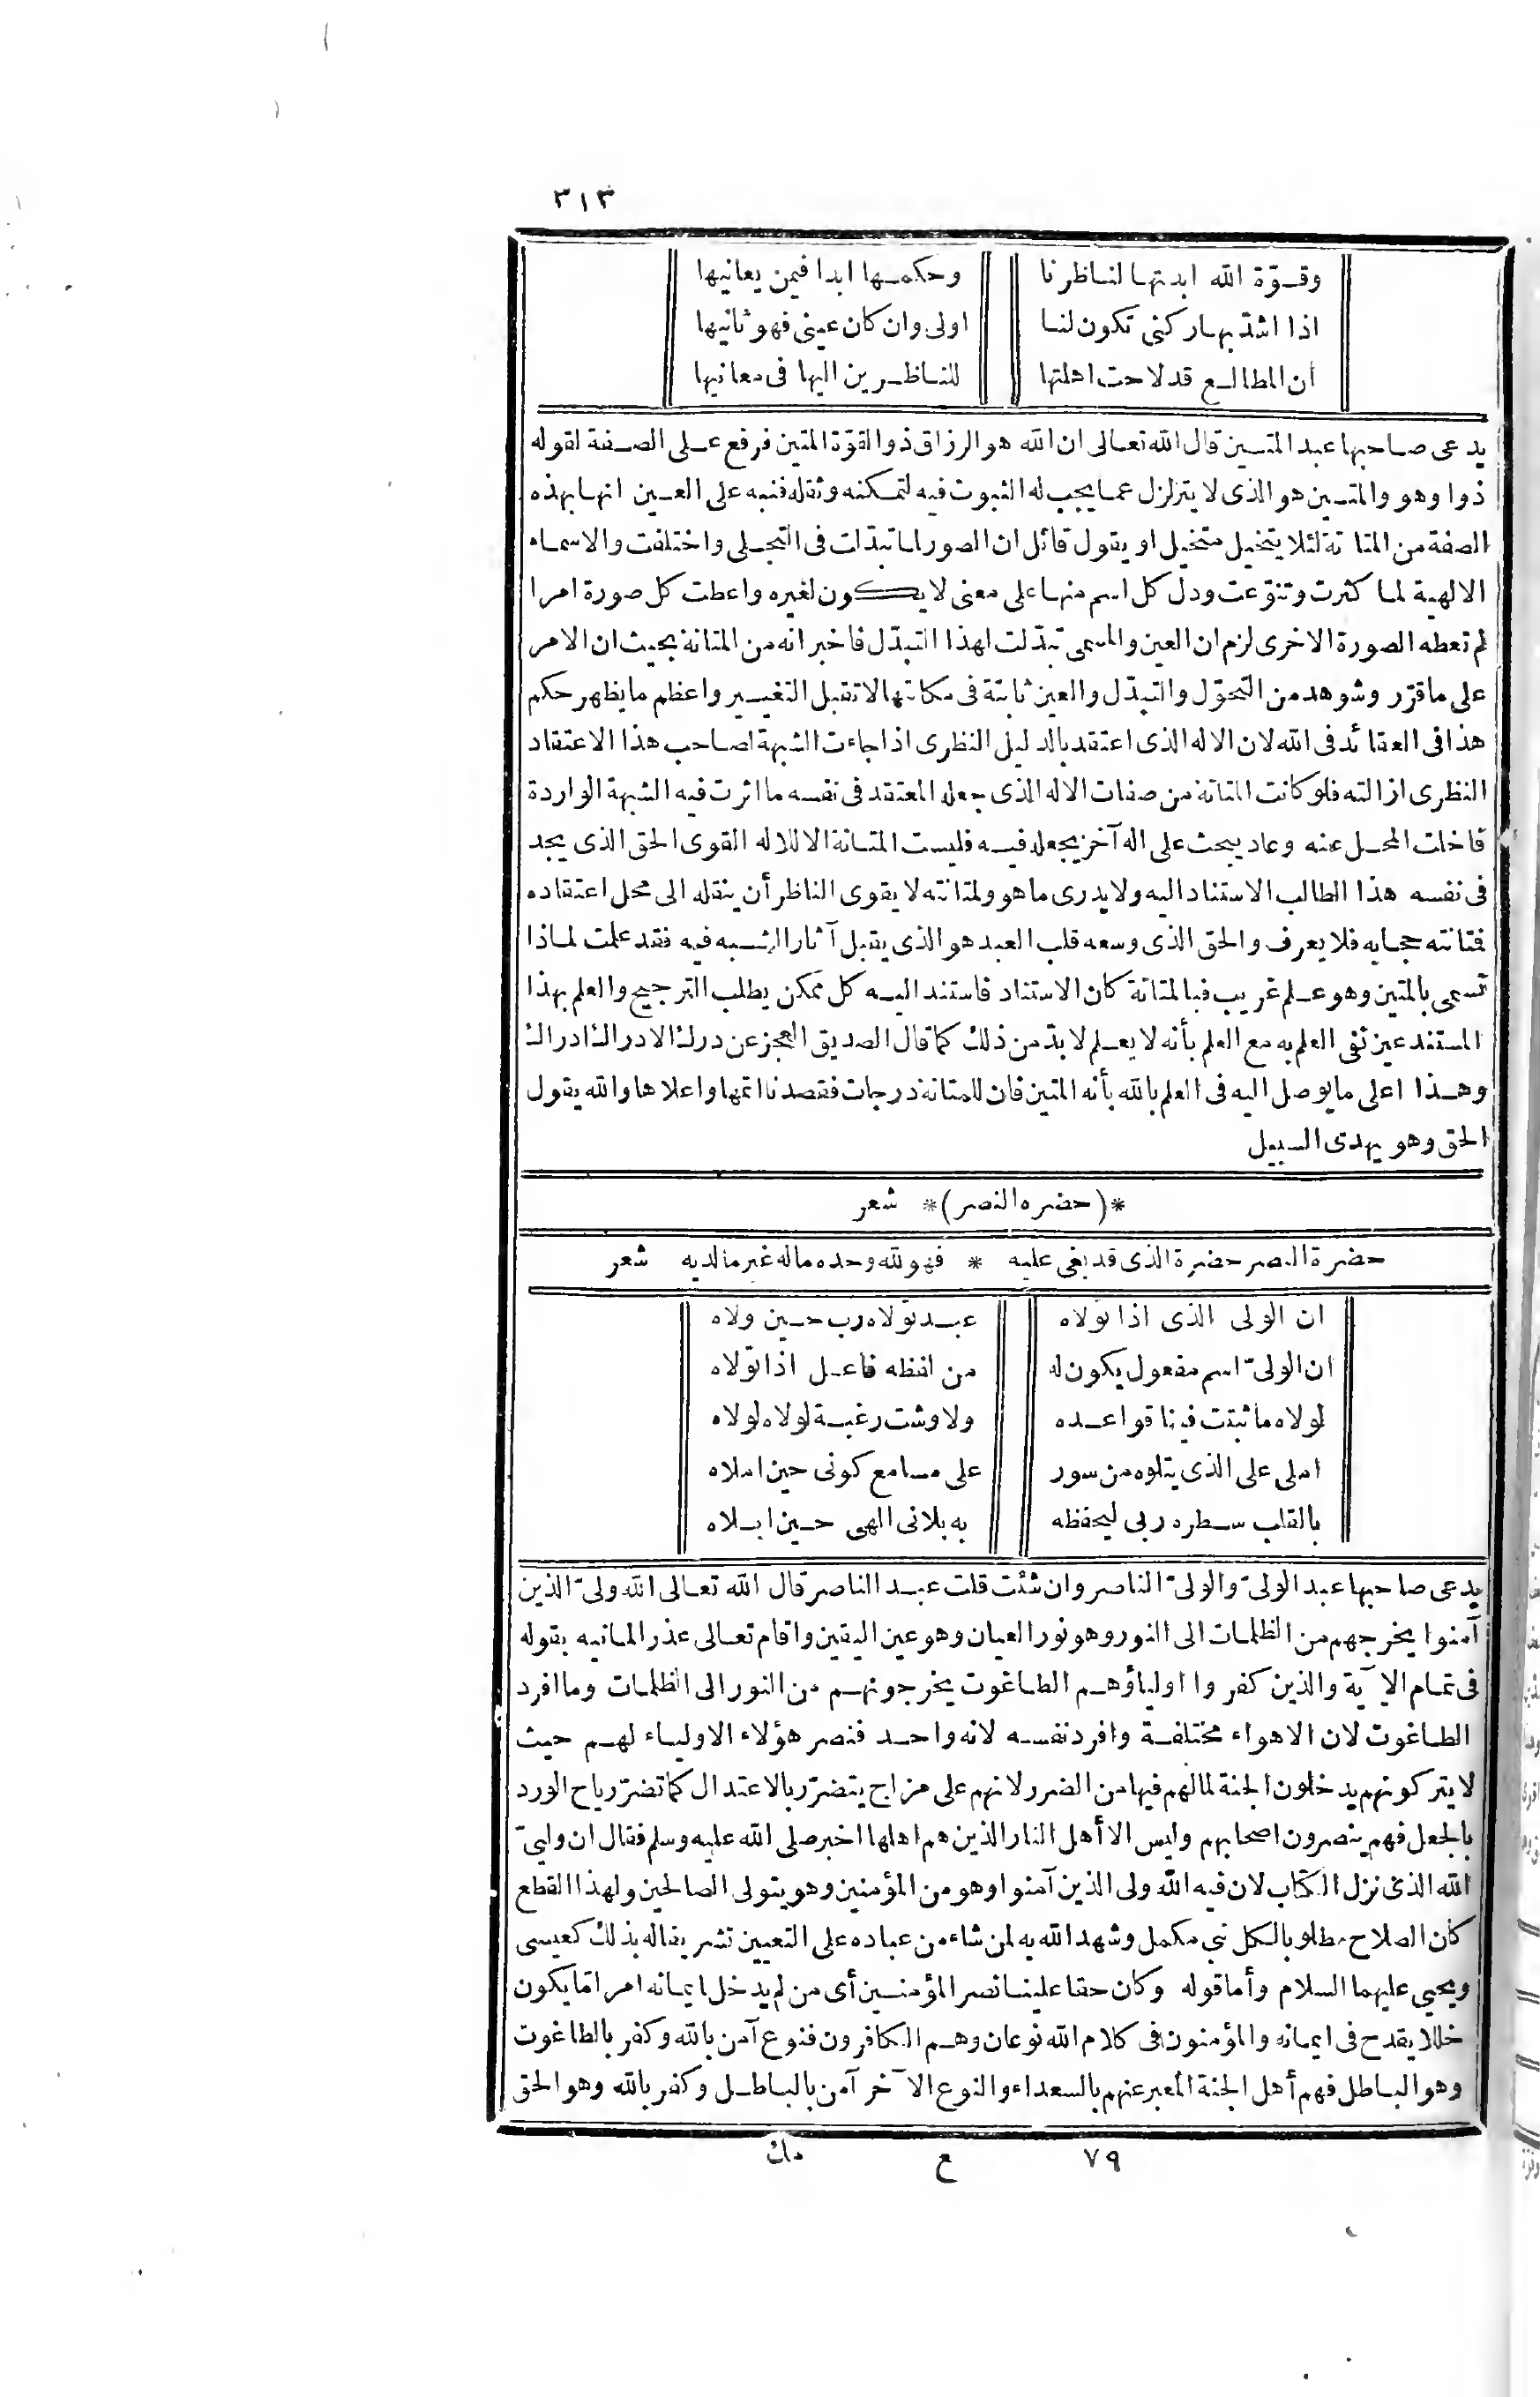 ٣١٣
وقوّة الله ابدتها لناظرنا وحكمها ابدا فيمن يعانيها
اذا اشتدّ بها ركنى تكون لنا اولى وان كان عينى فهو ثانيها
ان المطالع قد لاحت اهلتها للناظرين اليها فى معانيها
يدعى صاحبها عبد المتين قال الله تعالى ان الله هو الرزاق ذوا القوّة المتين فرفع على الصفة لقوله
ذوا وهو والمتين هو الذى لا يتزلزل عما يجب له الثبوت فيه لتمكنه وثقله فنبه على العين انها بهذه
الصفة من المتانة لئلا يتخيل متخيل او يقول قائل ان الصور لما تبدّات فى التجلى واختلفت والاسماء
الالهية لما كثرت وتنوّعت ودل كل اسم منها على معنى لا يكون لغيره واعطت كل صورة امرا
لم تعطه الصورة الاخرى لزم ان العين والمسمى تبدّلت لهذا التبدّل فاخبر انه من المتانة بحيث ان الامر
على ما قرّر وشوهد من التحوّل والتبدّل والعين ثابتة فى مكانتها لا تقبل التغيير واعظم ما يظهر حكم
هذا فى العقائد فى الله لان الاله الذى اعتقد بالدليل النظرى اذا جاءت الشبهة لصاحب هذا الاعتقاد
النظرى ازالته فلو كانت المتانة من صفات الاله الذى جعله المعتقد فى نفسه ما اثرت فيه الشبهة الواردة
فاخلت المحل عنه وعاد يبحث على اله آخر يجعله فيه فليست المتانة الا للاله القوى الحق الذى يجد
فى نفسه هذا الطالب الاستناد اليه ولا يدرى ما هو ولمتانته لا يقوى الناظر أن ينقله الى محل اعتقاده
فمتانته حجابه فلا يعرف والحق الذى وسعه قلب العبد هو الذى يقبل آثار الشبه فيه فقد علمت لماذا
تسمى بالمتين وهو علم غريب فبالمتانة كان الاستناد فاستند اليه كل ممكن يطلب الترجيح والعلم بهذا
المستند عين نفى العلم به مع العلم بأنه لا يعلم لا بدّ من ذلك كما قال الصديق العجز عن درك الادراك ادراك
وهذا اعلى ما يوصل اليه فى العلم بالله بأنه المتين فان للمتانة درجات فقصدنا اتمها واعلاها والله يقول
الحق وهو يهدى السبيل
*(حضره النصر)* شعر
حضرة النصر حضرة الذى قد بغى عليه * فهو لله وحده ماله غير ما لديه شعر
ان الولى الذى اذا تولاه عبد تولاه رب حين ولاه
ان الولىّ اسم مفعول يكون له من لفظه فاعل اذا توّلاه
لولاه ما ثبتت فينا قواعده ولا وشت رغبة لولاه لولاه
املى على الذى يتلوه من سور على مسامع كونى حين املاه
بالقلب سطره ربى ليحفظه به بلانى الهى حين ابلاه
يدعى صاحبها عبد الولىّ والولىّ الناصر وان شئت قلت عبد الناصر قال الله تعالى الله ولىّ الذين
آمنوا يخرجهم من الظلمات الى النور وهو نور العيان وهو عين اليقين واقام تعالى عذر المانيه بقوله
فى تمام الآية والذين كفروا اولياؤهم الطاغوت يخرجونهم من النور الى الظلمات وما افرد
الطاغوت لان الاهواء مختلفة وافرد نفسه لانه واحد فنصر هؤلاء الاولياء لهم حيث
لا يتركونهم يدخلون الجنة لما لهم فيها من الضرر لانهم على مزاج يتضرّر بالاعتدال كما تضرّ رياح الورد
بالجعل فهم ينصرون اصحابهم وليس الا أهل النار الذين هم اهلها اخبر صلى الله عليه وسلم فقال ان وليىّ
الله الذى نزل الكتاب لان فيه الله ولى الذين آمنوا وهو من المؤمنين وهو يتولى الصالحين ولهذا القطع
كان الصلاح مطلوبا لكل نبي مكمل وشهد الله به لمن شاء من عباده على التعيين تشريفا له بذلك كعيسى
ويحيى عليهما السلام وأما قوله وكان حقا علينا نصر المؤمنين أى من لم يدخل ايمانه امر امّا يكون
خللا يقدح فى ايمانه والمؤمنون فى كلام الله نوعان وهم الكافرون فنوع آمن بالله وكفر بالطاغوت
وهو الباطل فهم أهل الجنة المعبر عنهم بالسعداء والنوع الآخر آمن بالباطل وكفر بالله وهو الحق
٧٩ ع مك